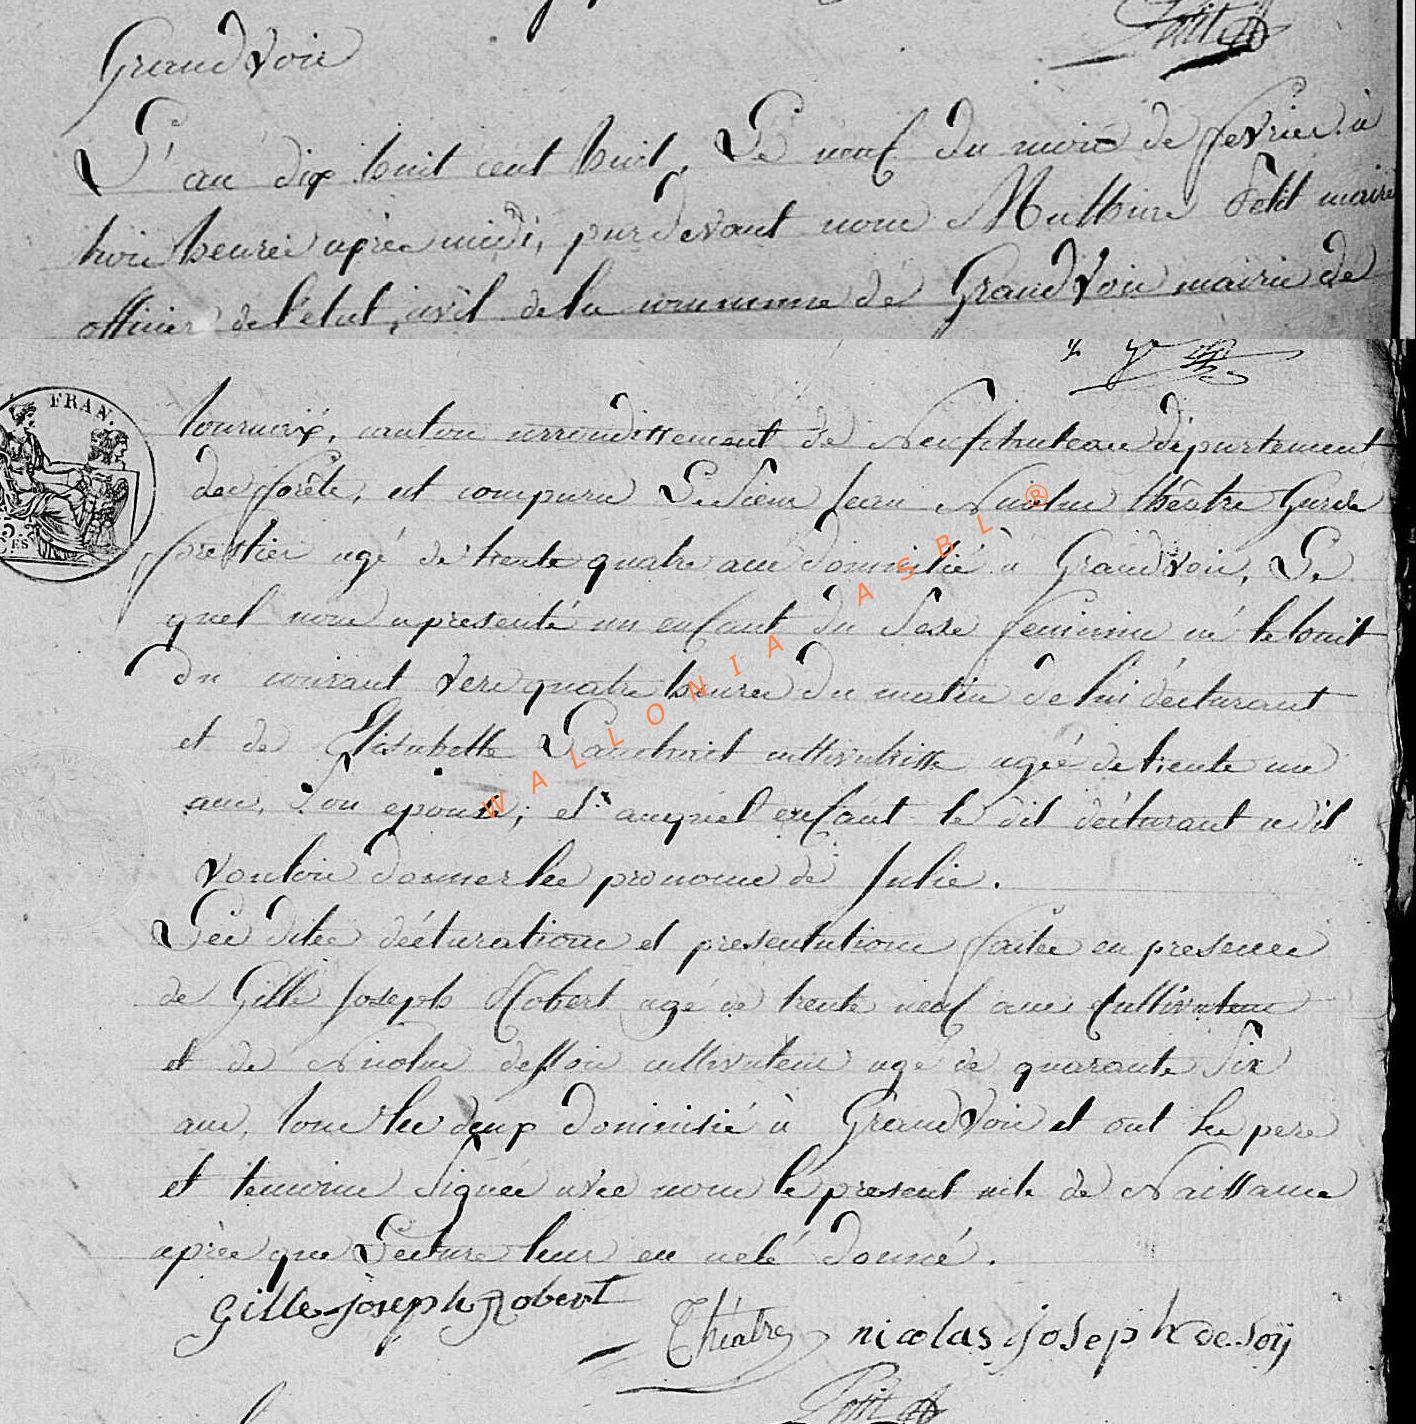 Grand Voir
L'an dix huit cent huit, Le neuf du mois de fevrier à
trois heures après midi, pardevant nous Mathieu Petit maire
officier de l'etat civil de la commune de Grand Voir mairie de
tournoix, canton arrondissement de Neufchateau département
des forêts, est comparu Le Sieur Jean Nicolas théatre Garde
forestier agé de trente quatre ans domicilié à Grand voir, Le
quel nous a presenté un enfant du Sexe feminin né le huit
du courant vers quatre heures du matin de lui déclarant
et de Elisabette cultivatrisse agée de trente un
ans, Son epouse; et auquel enfant le dit déclarant a dit
vouloir donner les pronoms de Julie.
Les dites déclarations et presentations faites en presence
de Gille Joseph Robert agé de trente neuf ans Cultivateur
et de Nicolas dessoi cultivateur agé de quarante Six
ans, tous les deux domicilié à Grand Voir et ont les pere
et temoins Signés avec nous le present acte de Naissance
après que Lecture leur en a eté donné.
Gille joseph Robert
Théatre nicolas joseph de soij
Petit
FRAN.
WALLONIA ASBL ®